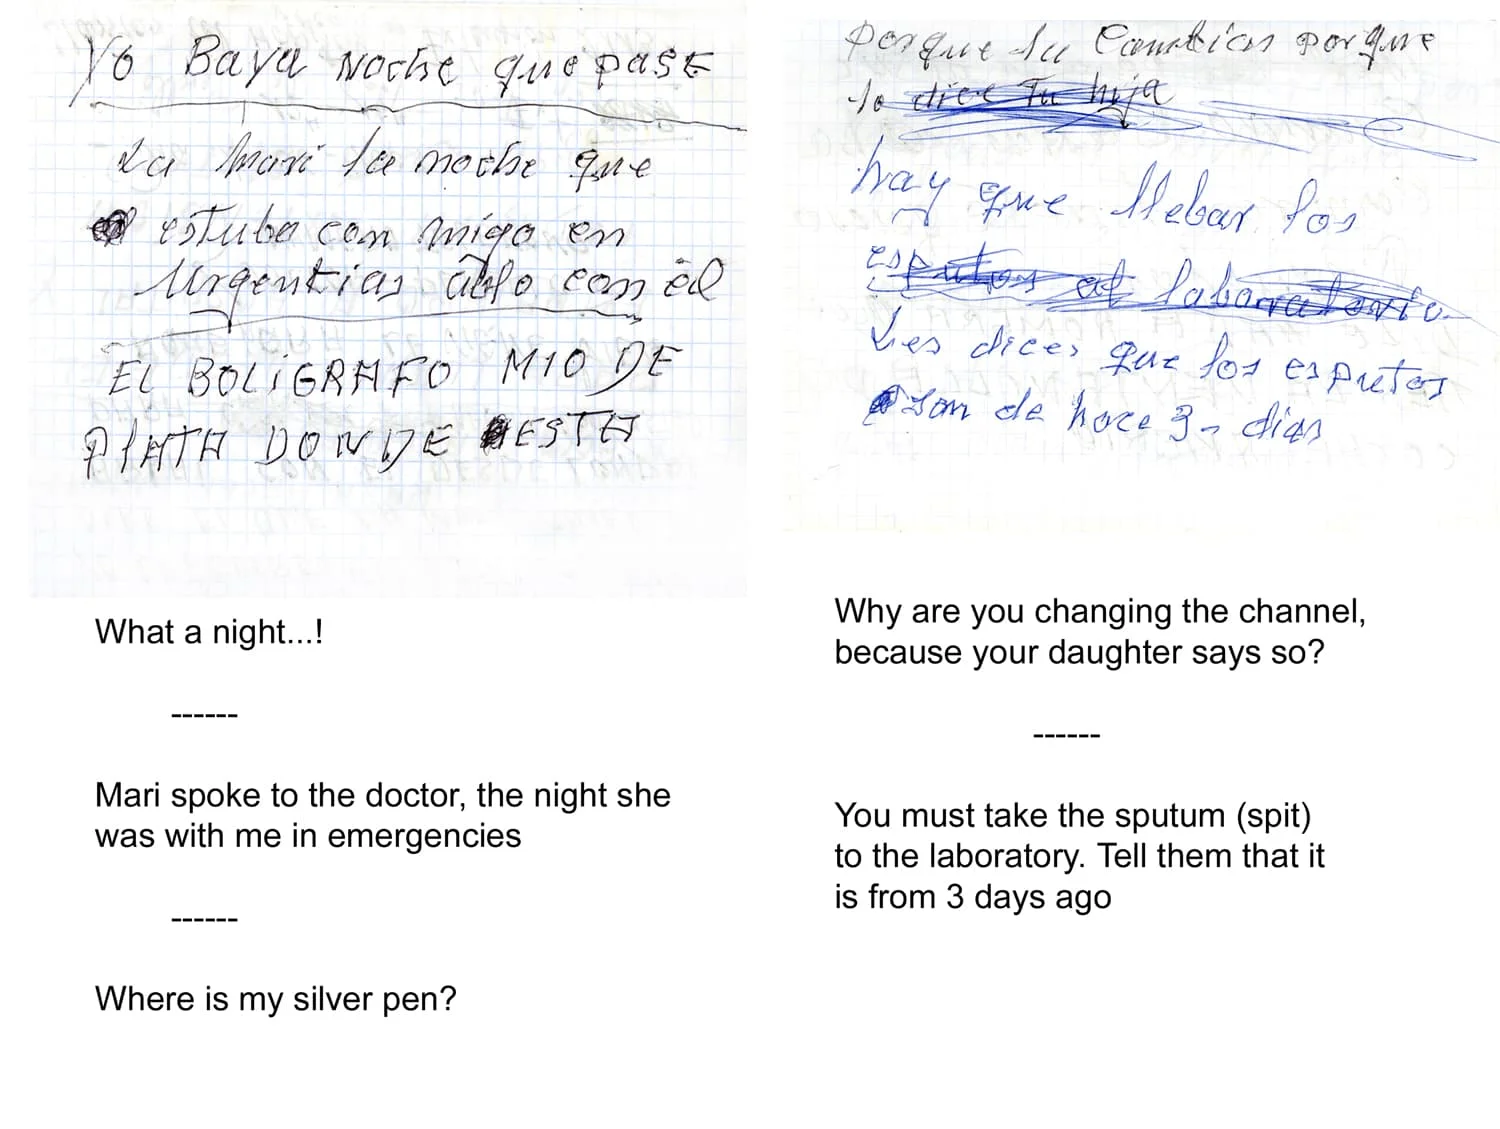 Yo Baya noche que pase
La Mari la noche que
estubo con migo en
Urgentias ablo con èl
EL BOLiGRAFO MIO DE
PlATA DONDE ESTA
What a night...!
------
Mari spoke to the doctor, the night she
was with me in emergencies
------
Where is my silver pen?
porque la Cambias porque
lo dice Tu hija
hay que llebar los
esputos al laboratorio
Les dices que los esputos
son de hace 3 dias
Why are you changing the channel,
because your daughter says so?
------
You must take the sputum (spit)
to the laboratory. Tell them that it
is from 3 days ago